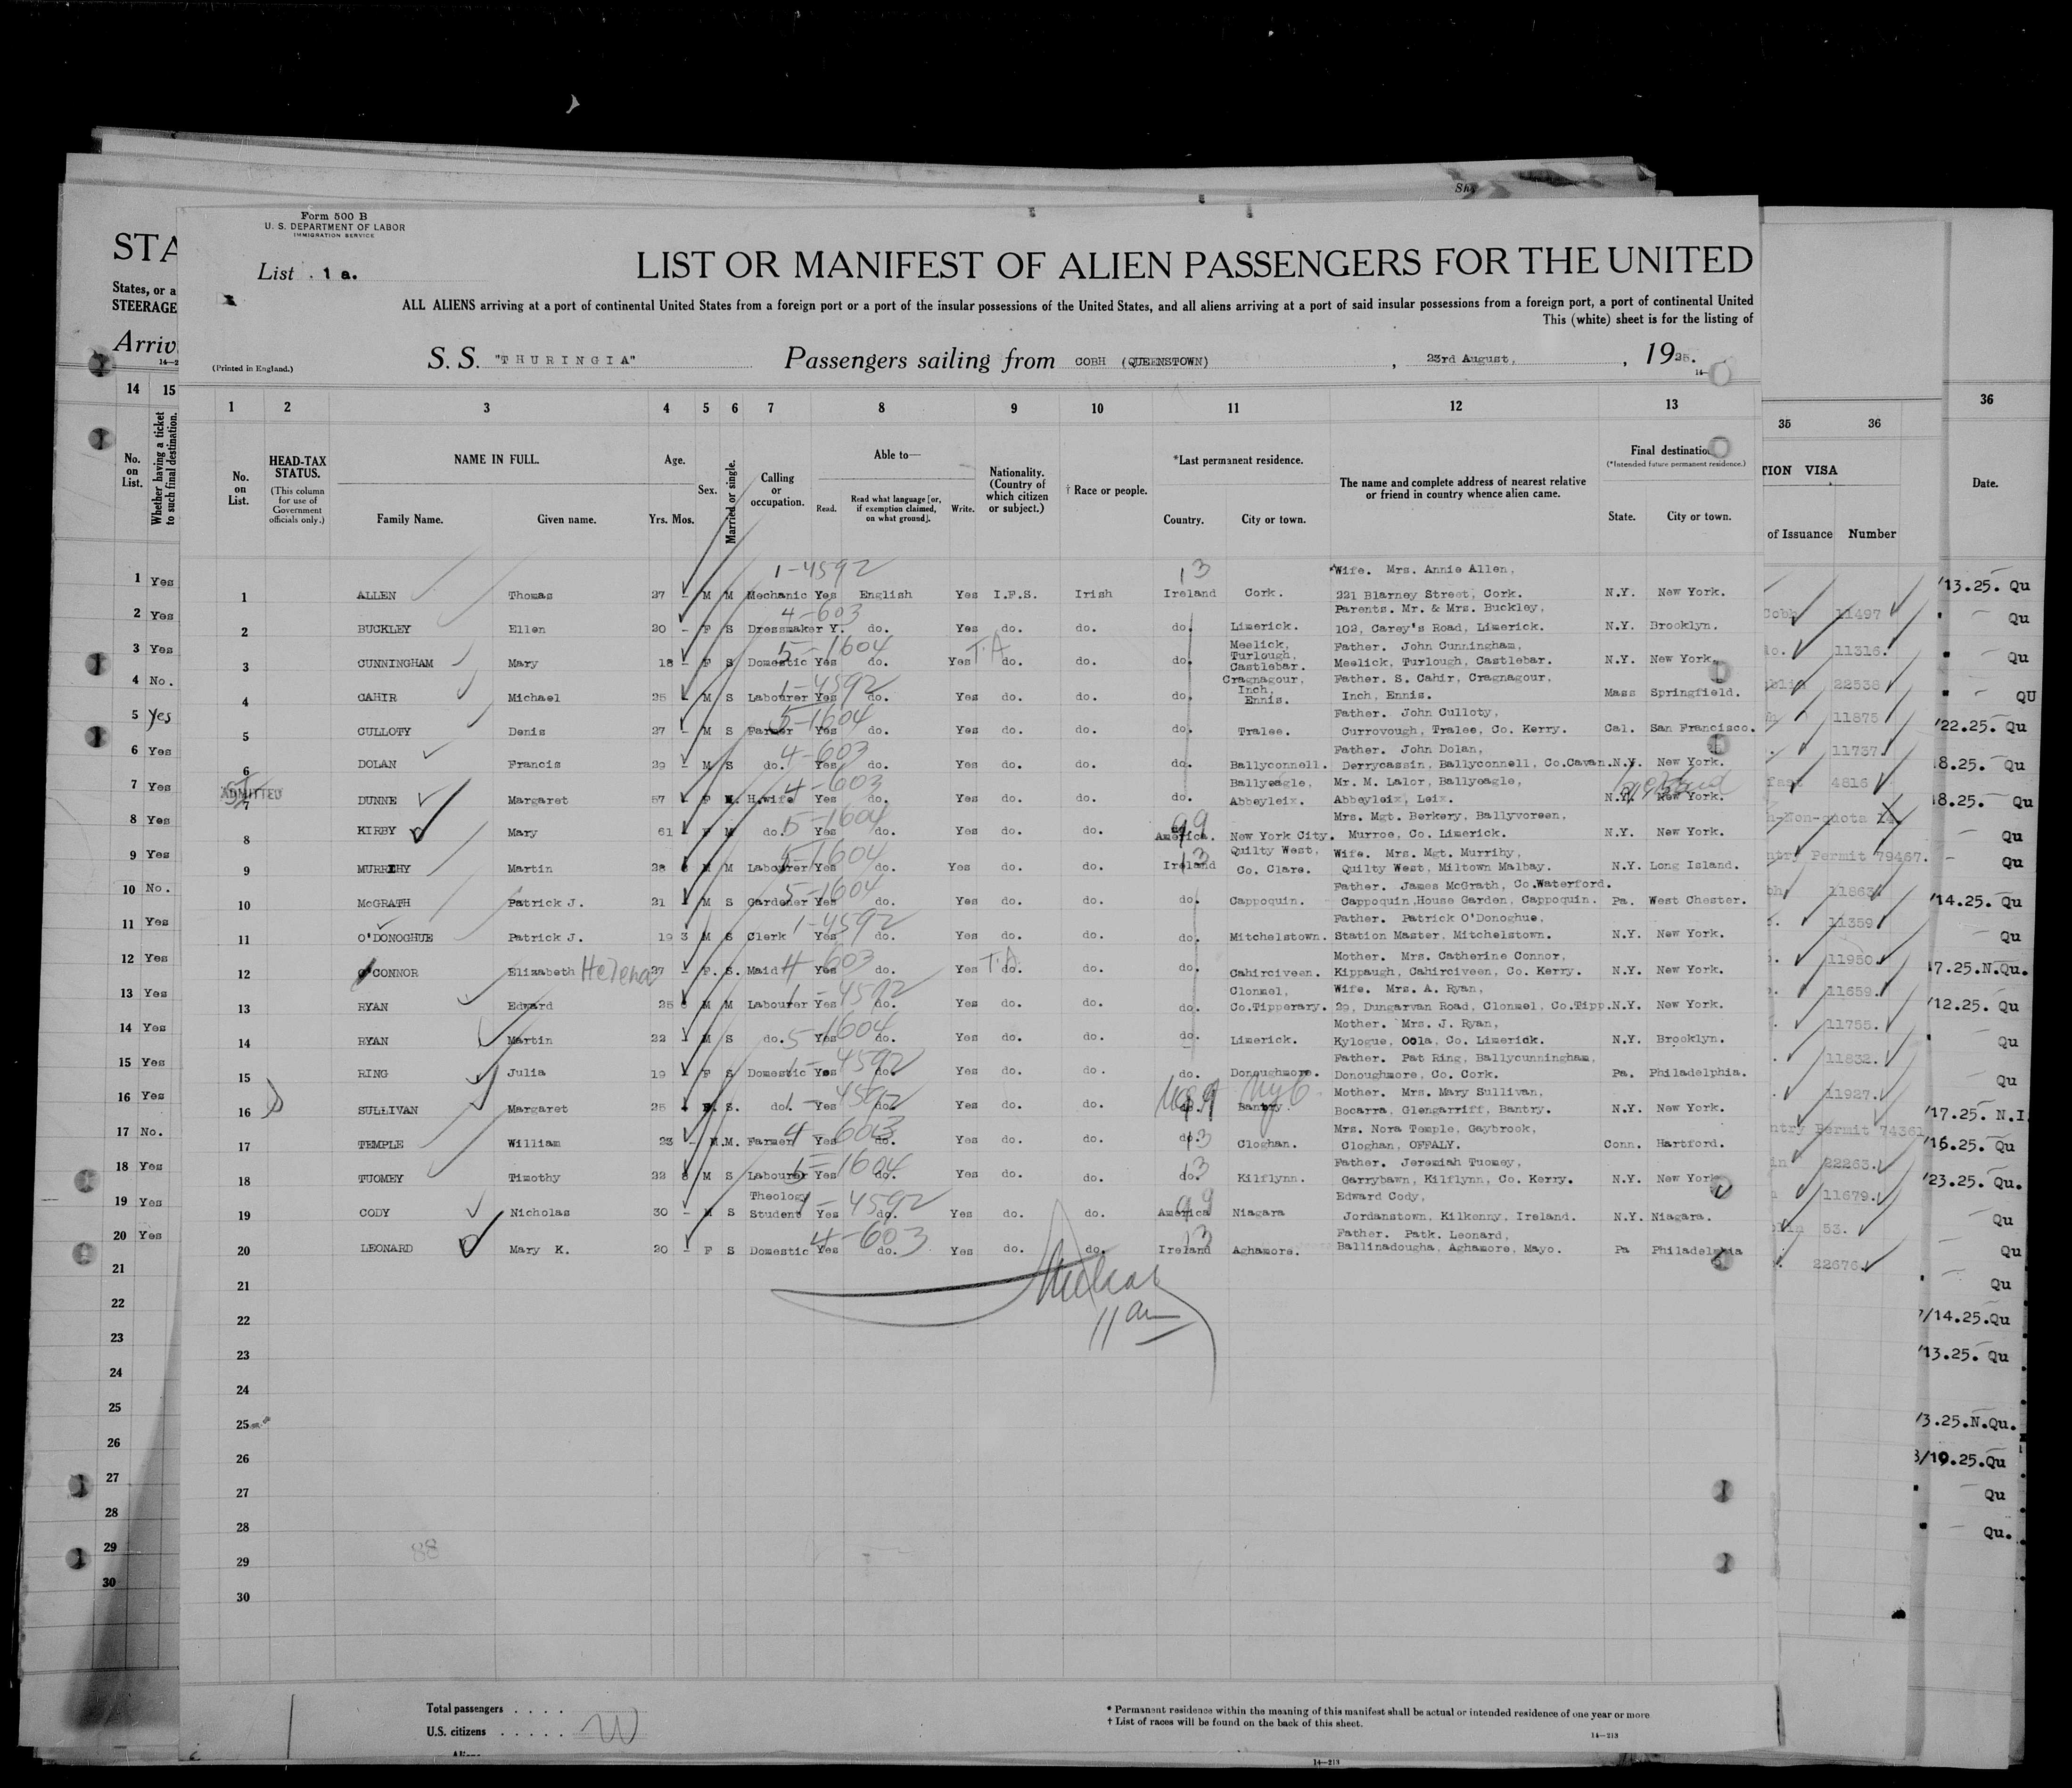 Form 500 B
U. S. DEPARTMENT OF LABOR
IMMIGRATION SERVICE
List 1 a.
LIST OR MANIFEST OF ALIEN PASSENGERS FOR THE UNITED
ALL ALIENS arriving at a port of continental United States from a foreign port or a port of the insular possessions of the United States, and all aliens arriving at a port of said insular possessions from a foreign port, a port of continental United
This (white) sheet is for the listing of
(Printed in England.)
S. S. "THURINGIA" Passengers sailing from COBH (QUEENSTOWN), 23rd August, , 1925.
STA
States, or a
STEERAGE
Arriv
14 15
No. on List.
Whether having a ticket to such final destination.
1 2 3 4 5 6 7 8 9 10 11 12 13
No. on List.
HEAD-TAX STATUS.
(This column for use of Government officials only.)
NAME IN FULL.
Family Name. Given name.
Age.
Yrs. Mos.
Sex.
Married or single.
Calling or occupation.
Able to—
Read. Read what language [or, if exemption claimed, on what ground]. Write.
Nationality. (Country of which citizen or subject.)
† Race or people.
*Last permanent residence.
Country. City or town.
The name and complete address of nearest relative or friend in country whence alien came.
Final destination
(*Intended future permanent residence.)
State. City or town.
35 36
TION VISA
of Issuance Number
36
Date.
1-4592 13 Wife. Mrs. Annie Allen,
1 ALLEN Thomas 27 - M M Mechanic Yes English Yes I.F.S. Irish Ireland Cork. 221 Blarney Street, Cork. N.Y. New York.
4-603 Parents. Mr. & Mrs. Buckley,
2 BUCKLEY Ellen 20 - F S Dressmaker Y. do. Yes do. do. do. Limerick. 102, Carey's Road, Limerick. N.Y. Brooklyn.
5-1604 T.A Meelick, Turlough, Castlebar. Father. John Cunningham,
3 CUNNINGHAM Mary 18 - F S Domestic Yes do. Yes do. do. do. Meelick, Turlough, Castlebar. N.Y. New York.
1-4592 Cragnagour, Inch, Ennis. Father. S. Cahir, Cragnagour,
4 CAHIR Michael 25 M S Labourer Yes do. Yes do. do. do. Inch, Ennis. Mass Springfield.
5-1604 Father. John Culloty,
5 CULLOTY Denis 27 - M S Farmer Yes do. Yes do. do. do. Tralee. Currovough, Tralee, Co. Kerry. Cal. San Francisco.
4-603 Father. John Dolan,
6 DOLAN Francis 29 - M S do. Yes do. Yes do. do. do. Ballyconnell. Derrycassin, Ballyconnell, Co.Cavan. N.Y. New York.
ADMITTED 4-603 Ballyeagle, Mr. M. Lalor, Ballyeagle,
7 DUNNE Margaret 57 F M. H.wife Yes do. Yes do. do. do. Abbeyleix. Abbeyleix, Leix. N.Y. New York.
5-1604 99 Mrs. Mgt. Berkery, Ballyvoreen,
8 KIRBY Mary 61 F M do. Yes do. Yes do. do. America. New York City. Murroe, Co. Limerick. N.Y. New York.
5-1604 13 Quilty West, Wife. Mrs. Mgt. Murrihy,
9 MURRIHY Martin 28 M M Labourer Yes do. Yes do. do. Ireland Co. Clare. Quilty West, Miltown Malbay. N.Y. Long Island.
5-1604 Father. James McGrath, Co.Waterford.
10 McGRATH Patrick J. 21 M S Gardener Yes do. Yes do. do. do. Cappoquin. Cappoquin,House Garden, Cappoquin. Pa. West Chester.
1-4592 Father. Patrick O'Donoghue,
11 O'DONOGHUE Patrick J. 19 3 M S Clerk Yes do. Yes do. do. do. Mitchelstown. Station Master, Mitchelstown. N.Y. New York.
4-603 T.A Mother. Mrs. Catherine Connor,
12 O'CONNOR Elizabeth Helena 27 - F. S. Maid Yes do. Yes do. do. do. Cahirciveen. Kippaugh, Cahirciveen, Co. Kerry. N.Y. New York.
1-4592 Clonmel, Wife. Mrs. A. Ryan,
13 RYAN Edward 25 M M Labourer Yes do. Yes do. do. do. Co.Tipperary. 29, Dungarvan Road, Clonmel, Co.Tipp. N.Y. New York.
5-1604 Mother. Mrs. J. Ryan,
14 RYAN Martin 22 M S do. Yes do. Yes do. do. do. Limerick. Kylogue, Oola, Co. Limerick. N.Y. Brooklyn.
1-4592 Father. Pat Ring, Ballycunningham,
15 RING Julia 19 F S Domestic Yes do. Yes do. do. do. Donoughmore. Donoughmore, Co. Cork. Pa. Philadelphia.
1-4592 99 NYC Mother. Mrs. Mary Sullivan,
16 SULLIVAN Margaret 25 F. S. do. Yes do. Yes do. do. Bantry. Bocarra, Glengarriff, Bantry. N.Y. New York.
4-603 13 Mrs. Nora Temple, Gaybrook,
17 TEMPLE William 23 - M.M. Farmer Yes do. Yes do. do. do. Cloghan. Cloghan, OFFALY. Conn. Hartford.
5-1604 13 Father. Jeremiah Tuomey,
18 TUOMEY Timothy 22 M S Labourer Yes do. Yes do. do. do. Kilflynn. Garrybawn, Kilflynn, Co. Kerry. N.Y. New York
1-4592 99 Edward Cody,
19 CODY Nicholas 30 - M S Theology Student Yes do. Yes do. do. America Niagara Jordanstown, Kilkenny, Ireland. N.Y. Niagara.
4-603 13 Father. Patk. Leonard,
20 LEONARD Mary K. 20 - F S Domestic Yes do. Yes do. do. Ireland Aghamore. Ballinadougha, Aghamore, Mayo. Pa Philadelphia
11 am
21
22
23
24
25
26
27
28
29
30
88
1 Yes
2 Yes
3 Yes
4 No.
5 Yes
6 Yes
7 Yes
8 Yes
9 Yes
10 No.
11 Yes
12 Yes
13 Yes
14 Yes
15 Yes
16 Yes
17 No.
18 Yes
19 Yes
20 Yes
21
22
23
24
25
26
27
28
29
30
Cobh 11497
do. 11316.
22538
11875
11737.
4816
n-Non-quota
ntry Permit 79467.
11863
11359
11950.
11659.
11755.
11832.
11927.
ntry Permit 74361
22263.
11679.
53.
22676
/13.25. Qu
Qu
Qu
QU
/22.25. Qu
8.25. Qu
8.25. Qu
Qu
Qu
/14.25. Qu
Qu
7.25.N.Qu.
/12.25. Qu
Qu
Qu
/17.25. N.I
/16.25. Qu
/23.25. Qu.
Qu
Qu
Qu
/14.25.Qu
/13.25. Qu
/3.25.N.Qu.
/19.25.Qu
Qu
Qu.
Total passengers . . . .
U.S. citizens . . . . .
* Permanent residence within the meaning of this manifest shall be actual or intended residence of one year or more
† List of races will be found on the back of this sheet.
14—213
14—213